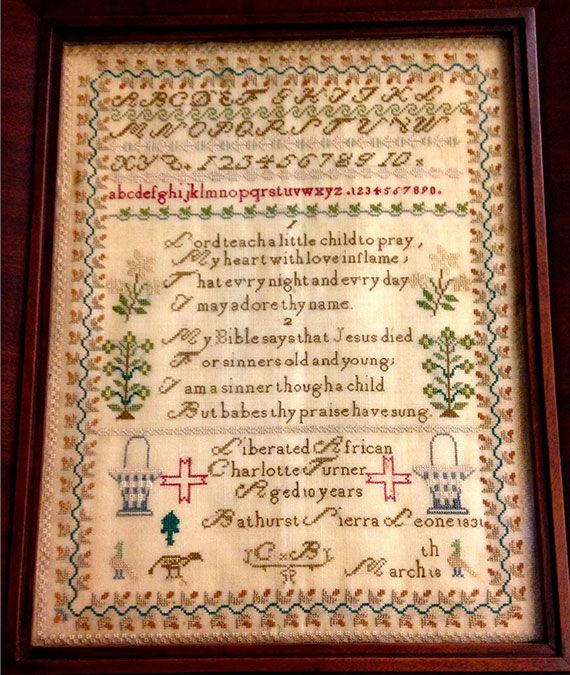 ABCDEFGHIJKL
MNOPQRSTUVW
XYZ. 12345678910.
abcdefghijklmnopqrstuvwxyz.1234567890.
1
Lord teach a little child to pray,
My heart with love inflame,
That ev'ry night and ev'ry day
I may adore thy name.
2
My Bible says that Jesus died
For sinners old and young;
I am a sinner though a child
But babes thy praise have sung.
Liberated African
Charlotte Turner
Aged 10 years
Bathurst Sierra Leone 1831
C x B
March 18th